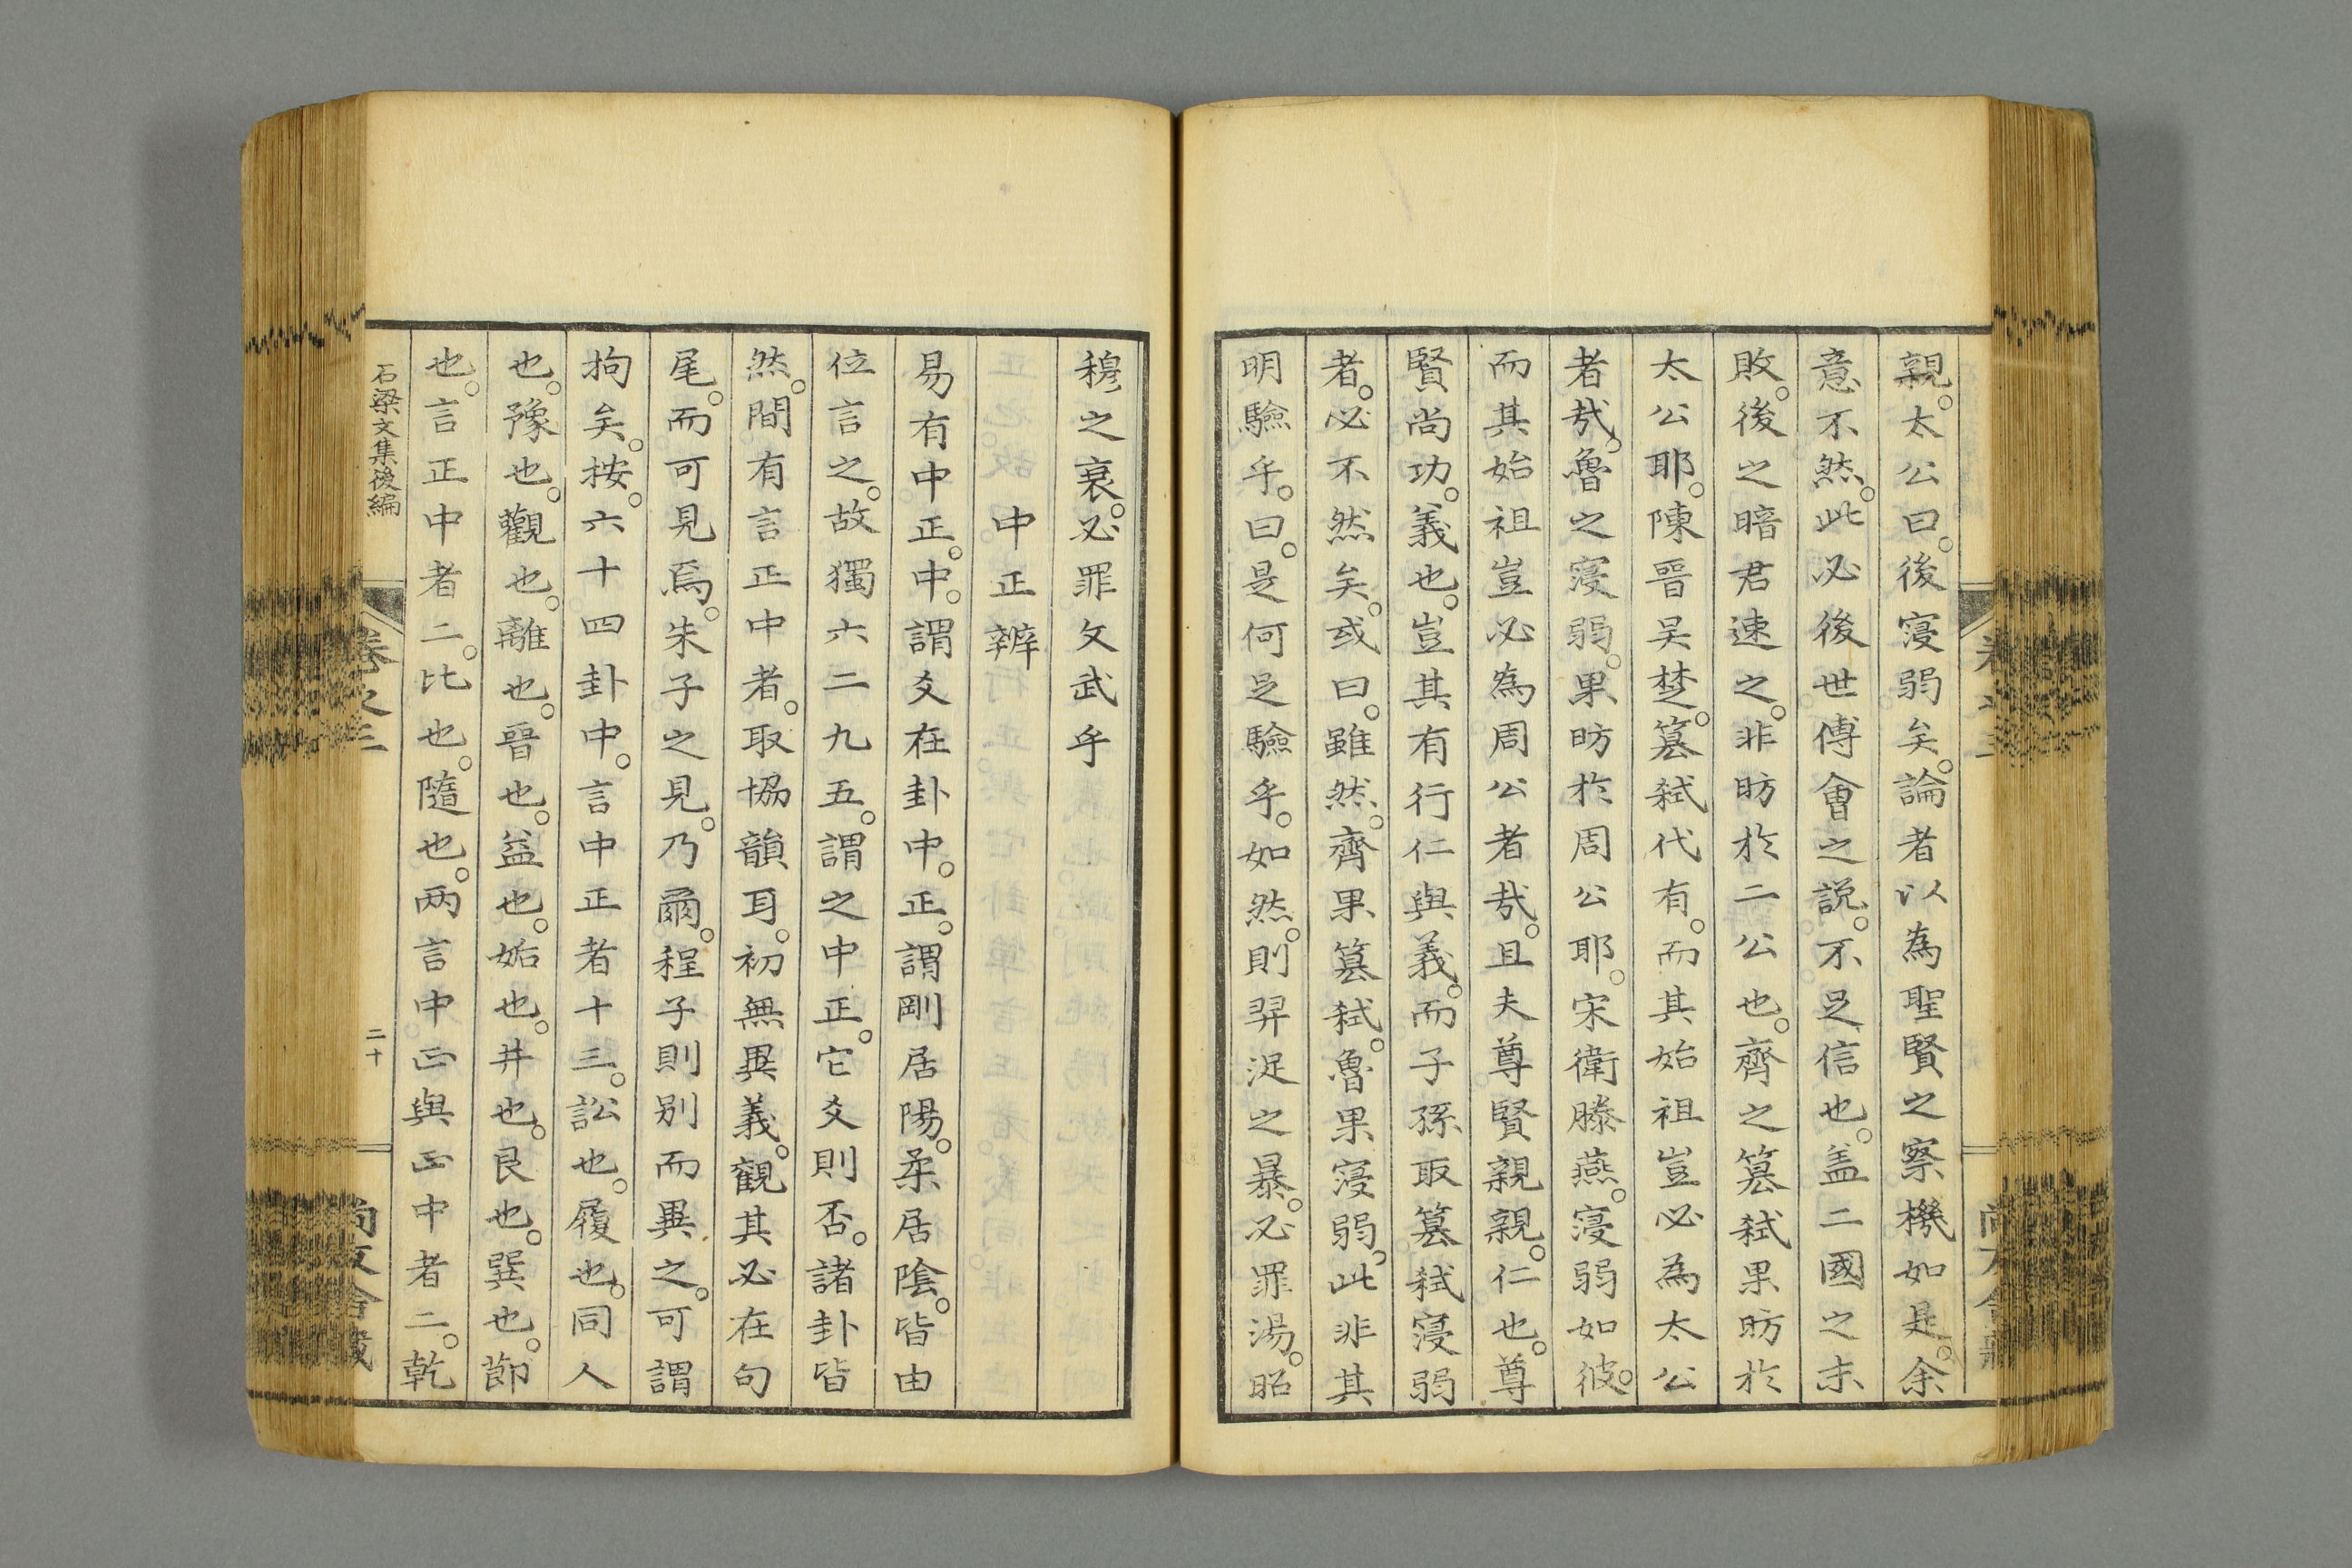 親。太公曰。後寖弱矣。論者以為聖賢之察機如是。余
意不然。此必後世傅會之説。不足信也。盖二國之末
敗。後之暗君速之。非昉於二公也。齊之簒弑果昉於
太公耶。陳晉吴楚。簒弑代有。而其始祖豈必為太公
者哉。魯之寖弱。果昉於周公耶。宋衛滕燕。寖弱如彼。
而其始祖豈必為周公者哉。且夫尊賢親親。仁也。尊
賢尚功。義也。豈其有行仁與義。而子孫取簒弑寖弱
者。必不然矣。或曰。雖然。齊果簒弑。魯果寖弱。此非其
明驗乎。曰。是何足驗乎。如然。則羿浞之暴。必罪湯。昭
穆之衰。必罪文武乎
中正辨
易有中正。中。謂爻在卦中。正。謂剛居陽。柔居陰。皆由
位言之。故獨六二九五。謂之中正。它爻則否。諸卦皆
然。間有言正中者。取協韻耳。初無異義。觀其必在句
尾。而可見焉。朱子之見。乃爾。程子則别而異之。可謂
拘矣。按。六十四卦中。言中正者十三。訟也。履也。同人
也。豫也。觀也。離也。晉也。益也。姤也。井也。艮也。巽也。節
也。言正中者二。比也。隨也。两言中正與正中者二。乾
石梁文集後編
卷之三
二十